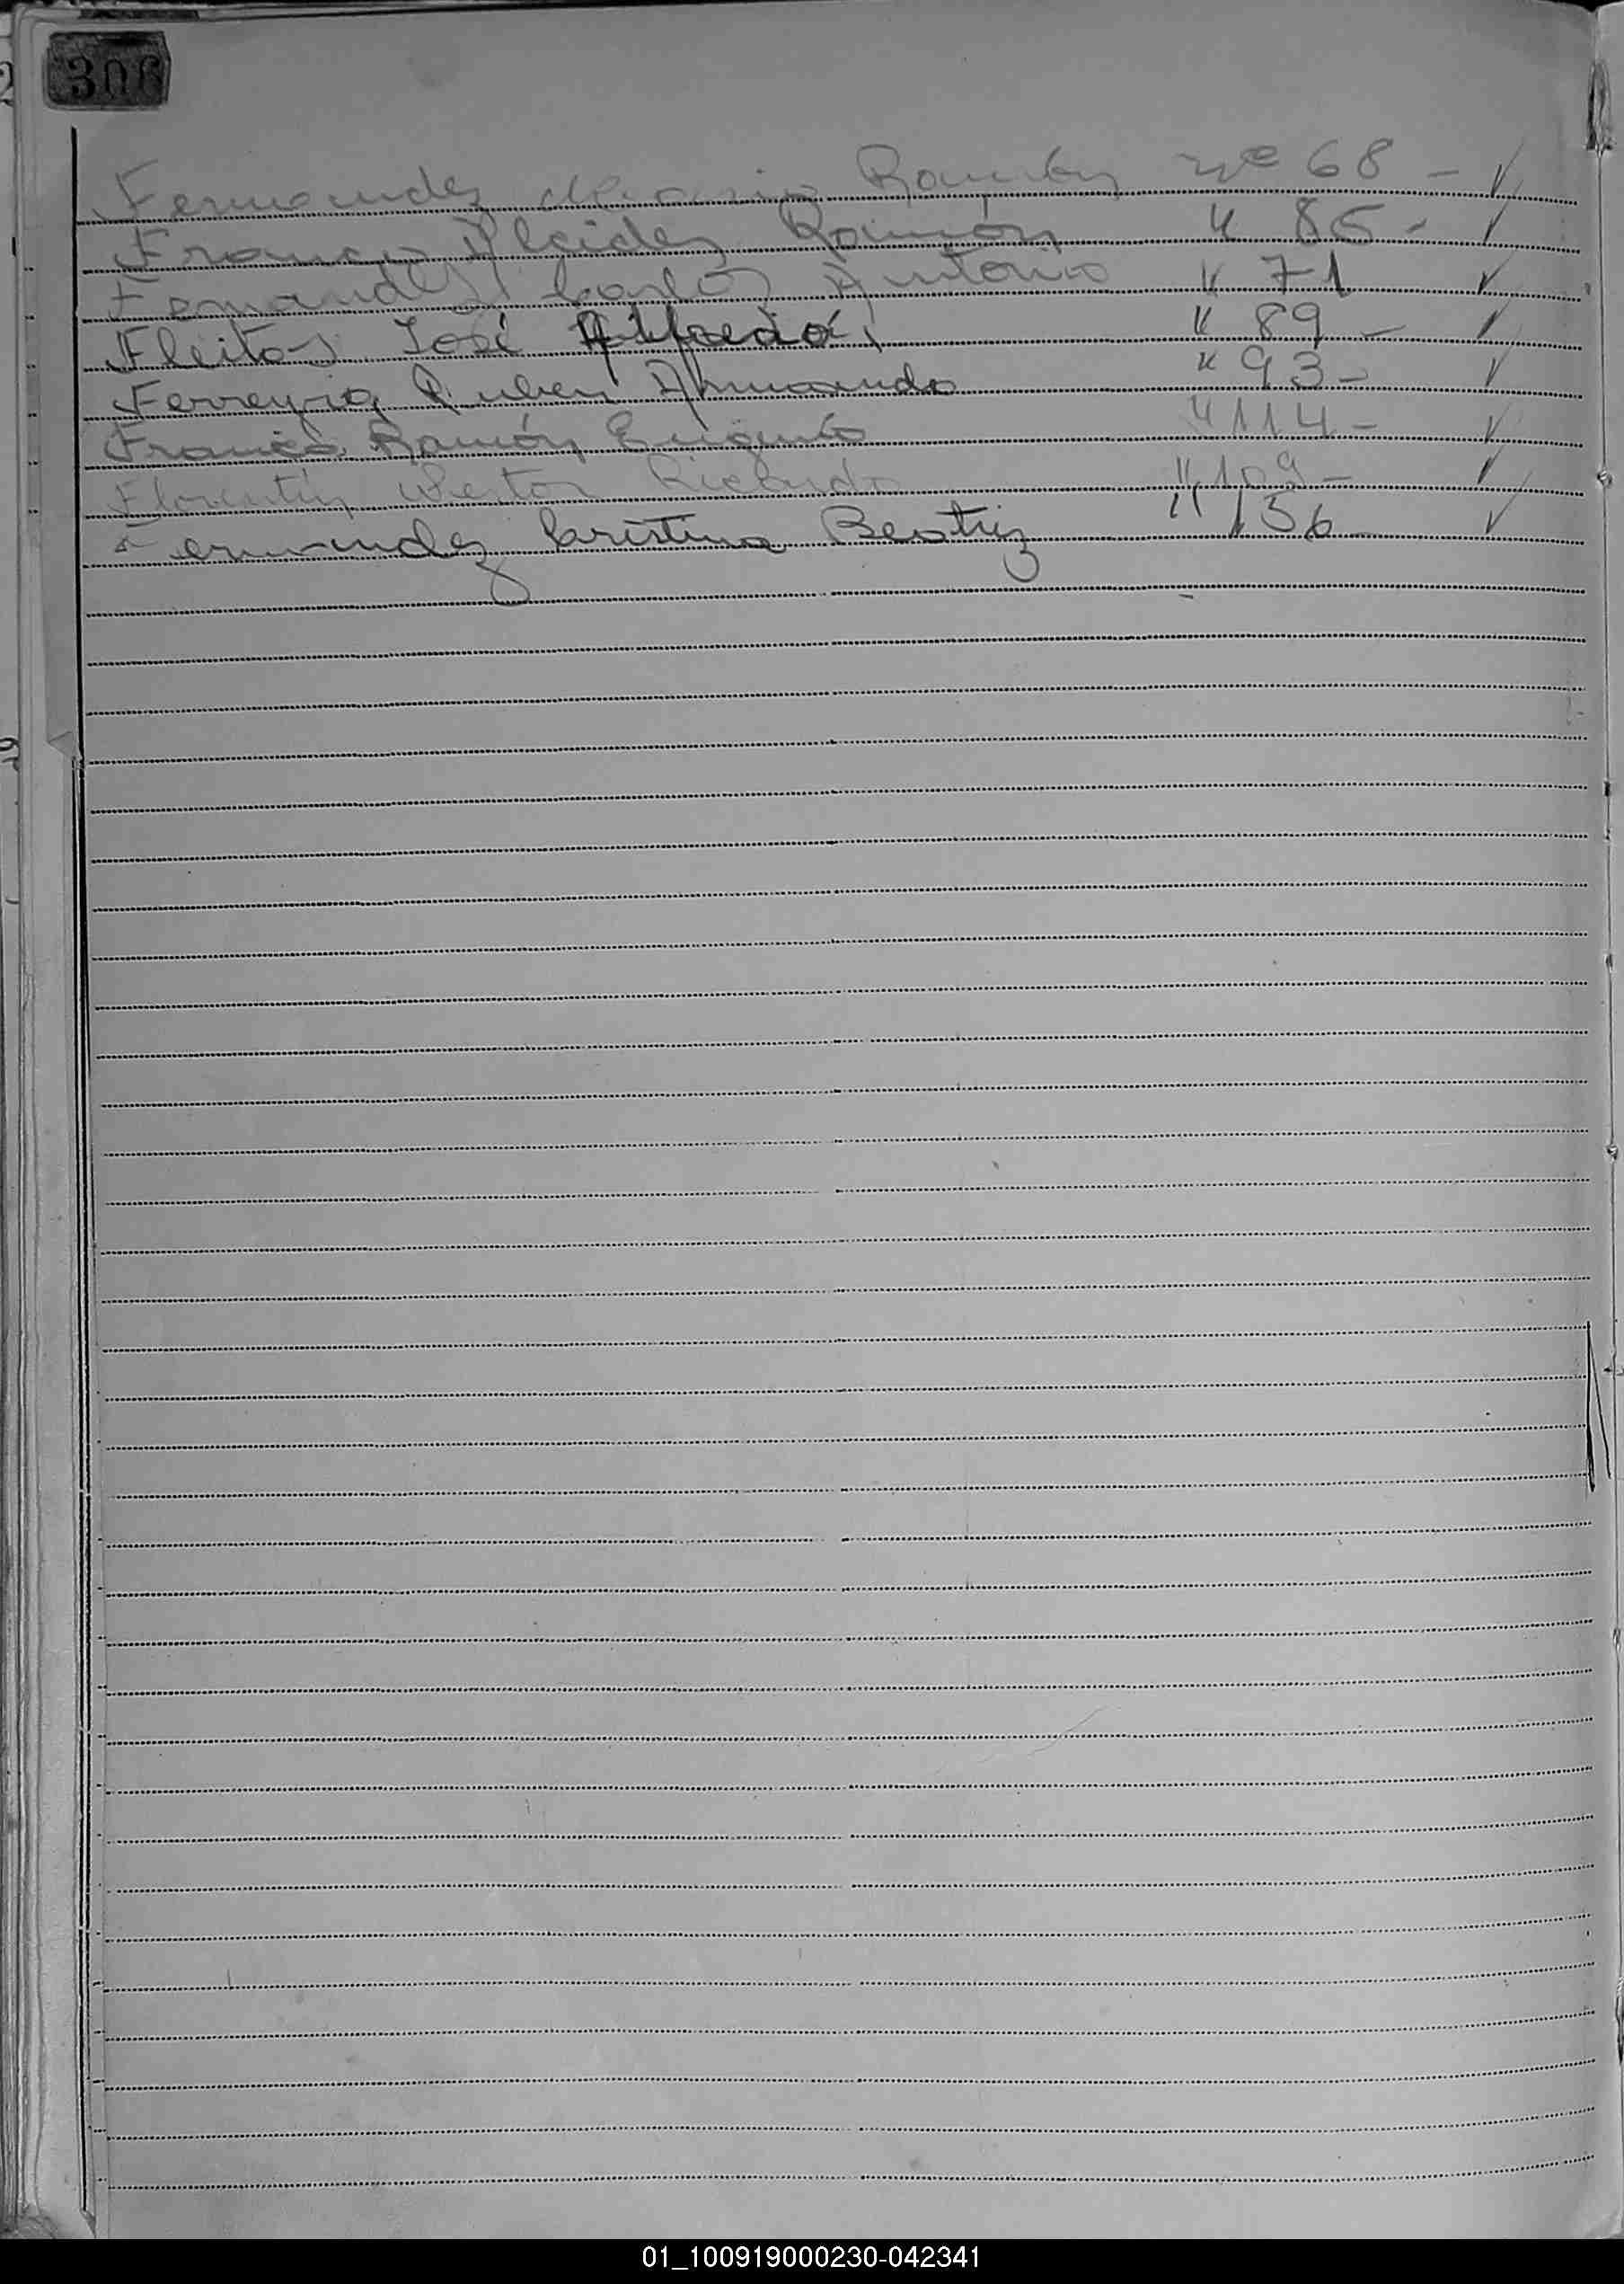 306
Fernandez Ramón nº 68 - ✓
Franco Alcides Ramón " 85 - ✓
Fernandez Carlos Antonio " 71 ✓
Fleitas José Alfredo " 89 - ✓
Ferreyra Ruben Armando " 93 - ✓
Franco Ramón Eugenio " 114 - ✓
Florentín Ricardo " 109 - ✓
Fernandez Cristina Beatriz " 136 - ✓
01_100919000230-042341